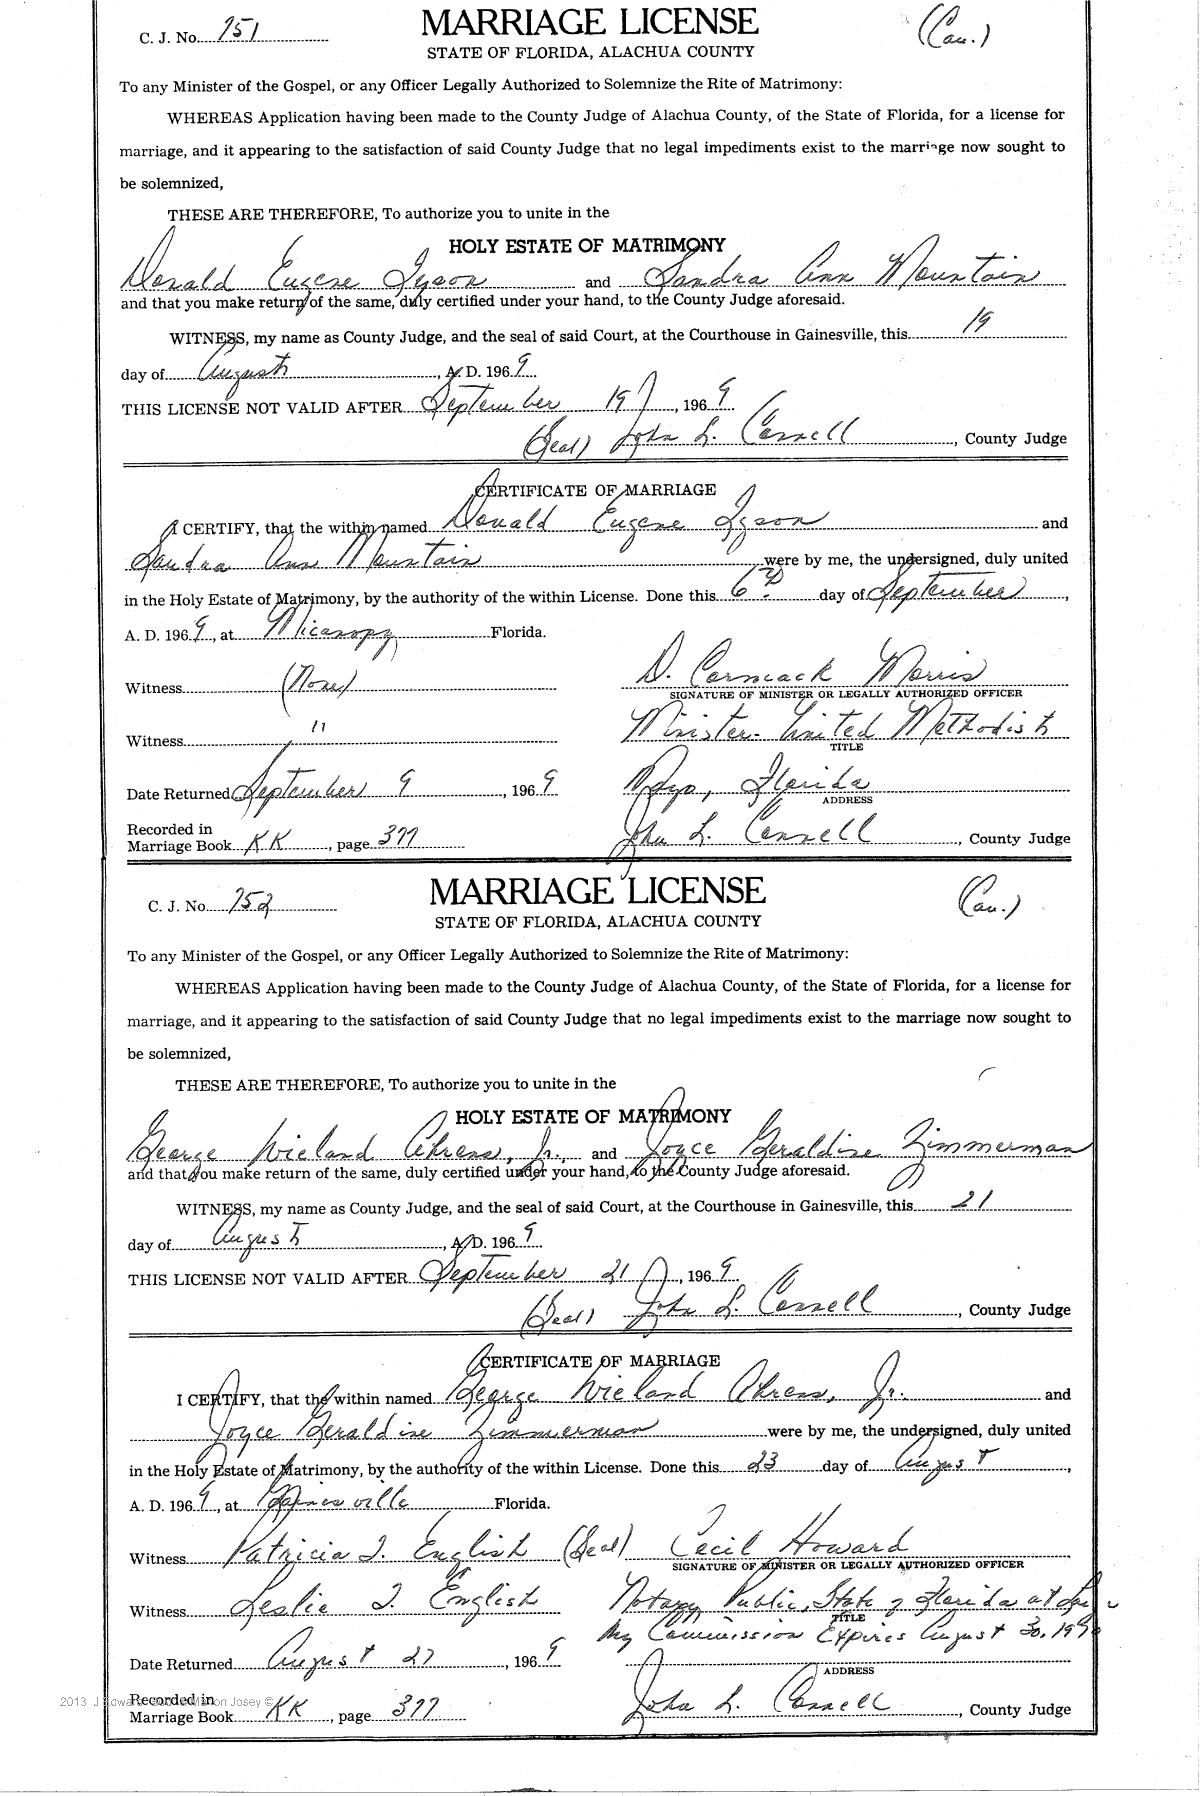 C. J. No. 751 MARRIAGE LICENSE (Cau.)
STATE OF FLORIDA, ALACHUA COUNTY
To any Minister of the Gospel, or any Officer Legally Authorized to Solemnize the Rite of Matrimony:
WHEREAS Application having been made to the County Judge of Alachua County, of the State of Florida, for a license for
marriage, and it appearing to the satisfaction of said County Judge that no legal impediments exist to the marriage now sought to
be solemnized,
THESE ARE THEREFORE, To authorize you to unite in the
HOLY ESTATE OF MATRIMONY
Donald Eugene Tyson and Sandra Ann Mountain
and that you make return of the same, duly certified under your hand, to the County Judge aforesaid.
WITNESS, my name as County Judge, and the seal of said Court, at the Courthouse in Gainesville, this 19
day of August, A. D. 1969.
THIS LICENSE NOT VALID AFTER September 19, 1969.
(Seal) John L. Connell, County Judge
CERTIFICATE OF MARRIAGE
I CERTIFY, that the within named Donald Eugene Tyson and
Sandra Ann Mountain were by me, the undersigned, duly united
in the Holy Estate of Matrimony, by the authority of the within License. Done this 6th day of September,
A. D. 1969, at Micanopy Florida.
Witness (None) D. Cormack Morris
SIGNATURE OF MINISTER OR LEGALLY AUTHORIZED OFFICER
Witness " Minister- United Methodist
TITLE
Date Returned September 9, 1969 Mayo, Florida
ADDRESS
Recorded in
Marriage Book KK, page 377 John L. Connell, County Judge
C. J. No. 752 MARRIAGE LICENSE (Cau.)
STATE OF FLORIDA, ALACHUA COUNTY
To any Minister of the Gospel, or any Officer Legally Authorized to Solemnize the Rite of Matrimony:
WHEREAS Application having been made to the County Judge of Alachua County, of the State of Florida, for a license for
marriage, and it appearing to the satisfaction of said County Judge that no legal impediments exist to the marriage now sought to
be solemnized,
THESE ARE THEREFORE, To authorize you to unite in the
HOLY ESTATE OF MATRIMONY
George Wieland Ahrens, Jr., and Joyce Geraldine Zimmerman
and that you make return of the same, duly certified under your hand, to the County Judge aforesaid.
WITNESS, my name as County Judge, and the seal of said Court, at the Courthouse in Gainesville, this 21
day of August, A. D. 1969.
THIS LICENSE NOT VALID AFTER September 21, 1969.
(Seal) John L. Connell, County Judge
CERTIFICATE OF MARRIAGE
I CERTIFY, that the within named George Wieland Ahrens, Jr. and
Joyce Geraldine Zimmerman were by me, the undersigned, duly united
in the Holy Estate of Matrimony, by the authority of the within License. Done this 23 day of August,
A. D. 1969, at Gainesville Florida.
Witness Patricia I. English (Seal) Cecil Howard
SIGNATURE OF MINISTER OR LEGALLY AUTHORIZED OFFICER
Witness Leslie I. English Notary Public, State of Florida at
TITLE
My Commission Expires August 30,
Date Returned August 27, 1969
ADDRESS
Recorded in
Marriage Book KK, page 377 John L. Connell, County Judge
2013 Josey ©